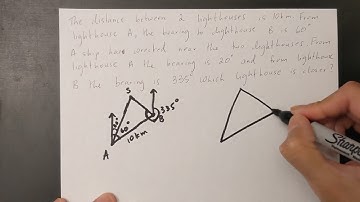 The distance between 2 lighthouses is 10km. From
lighthouse A, the bearing to lighthouse B is 60°
A ship has wrecked near the two lighthouses. From
lighthouse A the bearing is 20° and from lighthouse
B the bearing is 335° which lighthouse is closer?
S
60°
335°
B
10km
A
Sharpie